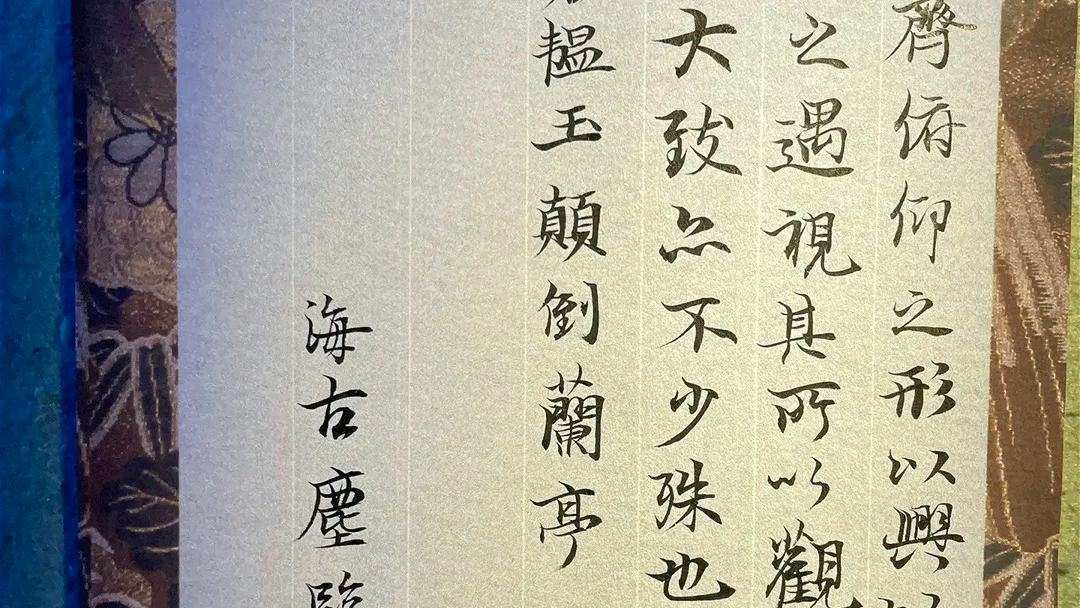 齊俯仰之形以興
之遇視其所以觀
大致亦不少殊也
韞玉顛倒蘭亭
海古塵臨